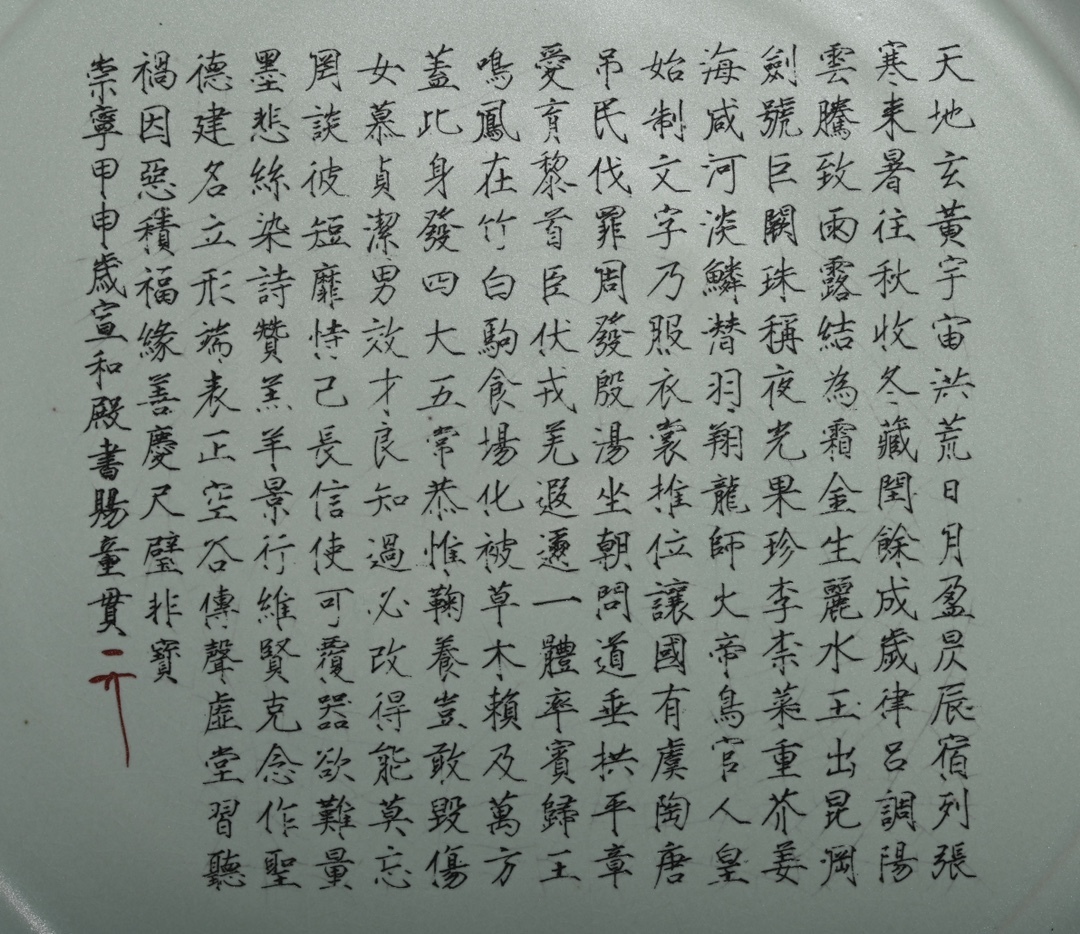 天地玄黃宇宙洪荒日月盈昃辰宿列張
寒来暑往秋收冬藏閏餘成歲律吕調陽
雲騰致雨露結為霜金生麗水玉出昆岡
劍號巨闕珠稱夜光果珍李柰菜重芥姜
海咸河淡鱗潛羽翔龍師火帝鳥官人皇
始制文字乃服衣裳推位讓國有虞陶唐
吊民伐罪周發殷湯坐朝問道垂拱平章
愛育黎首臣伏戎羌遐邇一體率賓歸王
鳴鳳在竹白駒食場化被草木賴及萬方
蓋此身發四大五常恭惟鞠養豈敢毀傷
女慕貞潔男效才良知過必改得能莫忘
罔談彼短靡恃己長信使可覆器欲難量
墨悲絲染詩贊羔羊景行維賢克念作聖
德建名立形端表正空谷傳聲虛堂習聽
禍因惡積福緣善慶尺璧非寶
崇寧甲申歲宣和殿書賜童貫